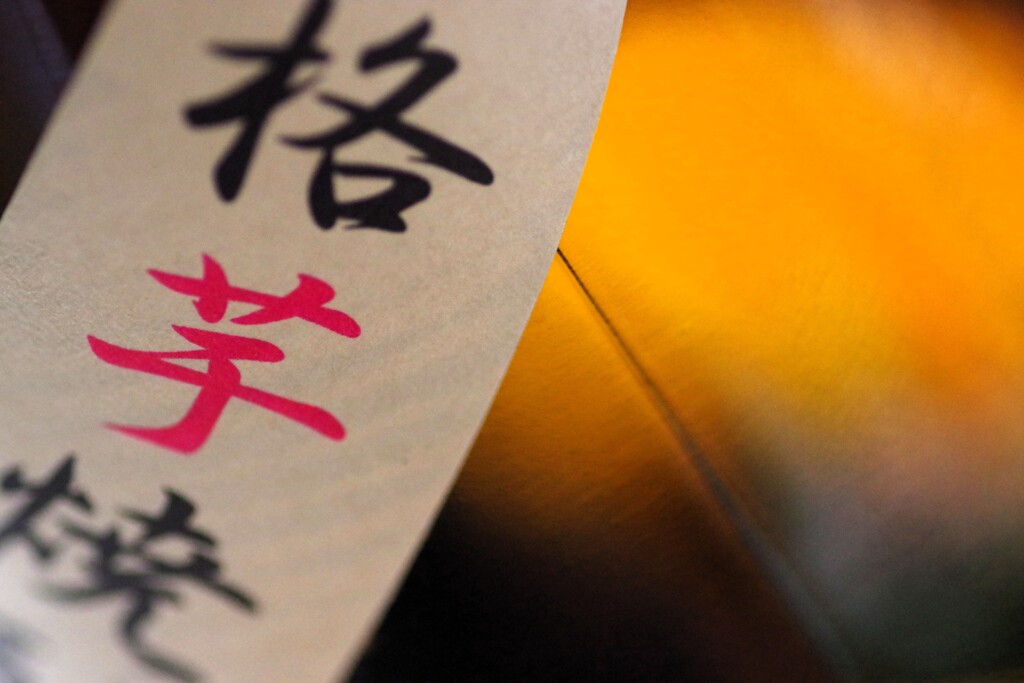 格芋焼